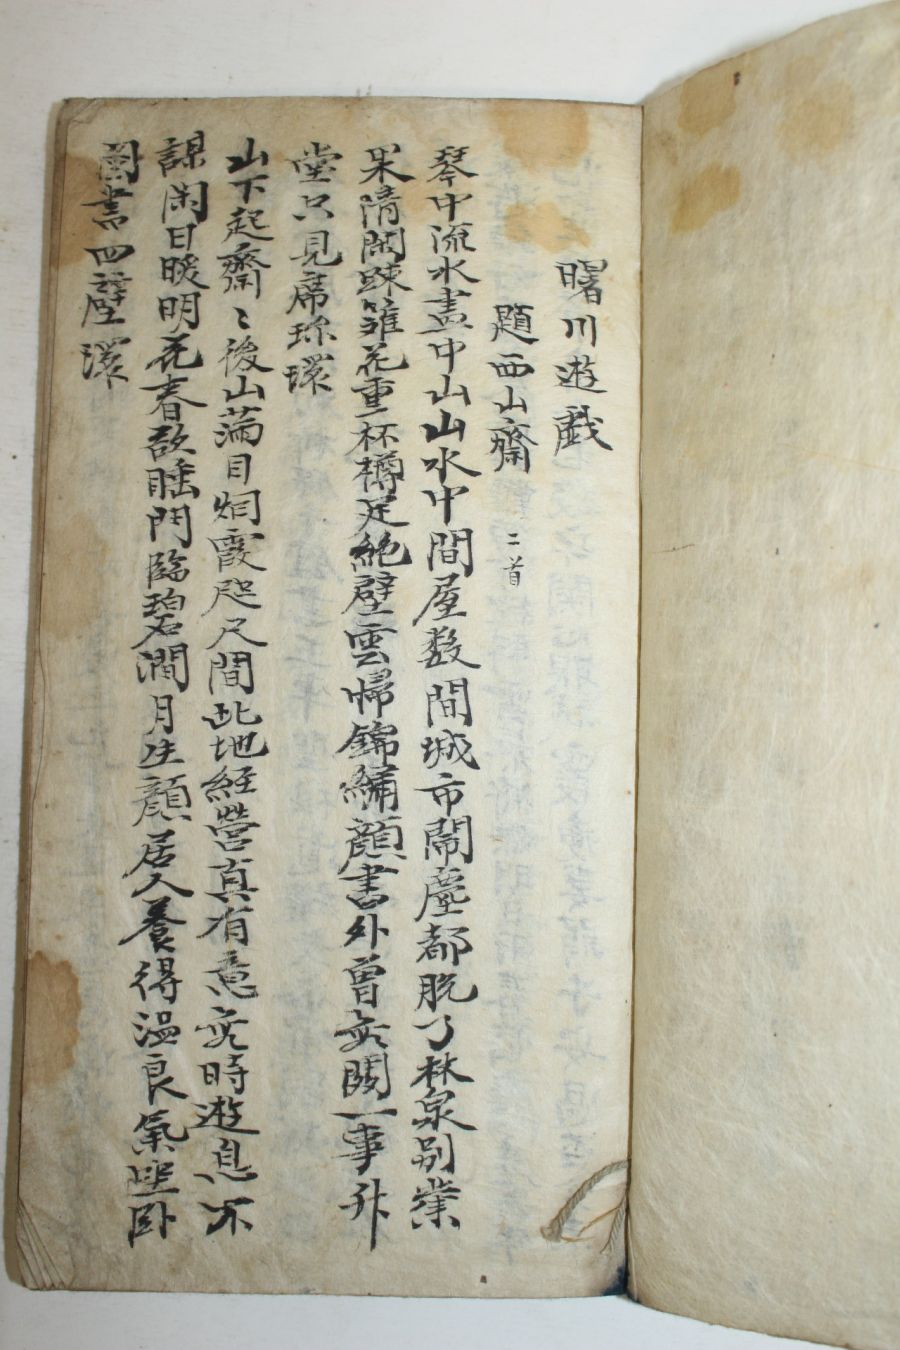 曙川遊戱
題西山齋 二首
琴中流水畵中山山水中間屋數間城市鬧塵都脫了林泉別業
果隋閑踈籬花重一杯樽足絶壁雲歸錦繡顔書外曾無關一事升
堂只見席珎環
山下起齋〻後山滿目烟霞咫尺間此地經營真有意玄時遊息不
謀閑日暖明花春欲睡門臨碧澗月生顔居人養得溫良氣坐卧
圖書四壁環